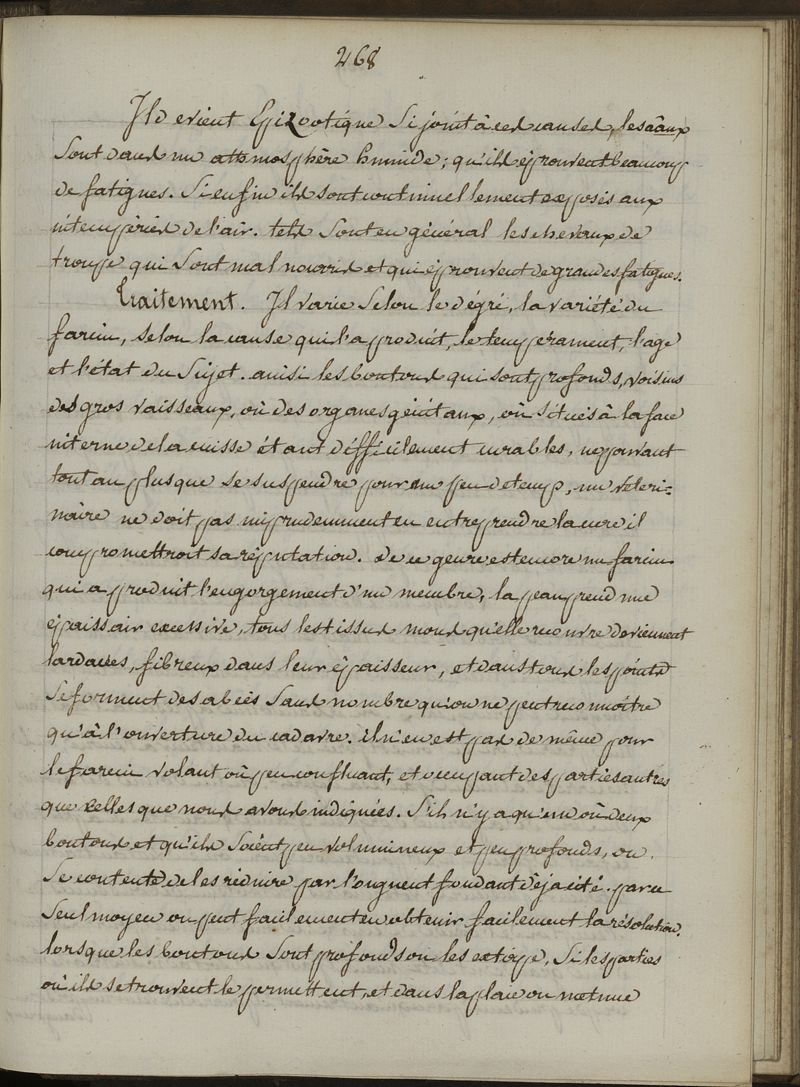 268
Il devient Epizootique Si joint à ces causes, les aaux
Sont dans un attemosphère humide; qu'ils éprouvent beaucoup
de fatigues. Si enfin ils sont continuellement exposés aux
intempéries de l'air. tels Sont en général les chevaux de
troupe qui Sont mal nourris et qui éprouvent de grandes fatigues.
Traitement. Il varie Selon le dégré, la variété du
farcin, Selon la cause qui l'a produit, le tempérament, l'age
et l'état du Sujet. ainsi les boutons qui sont profonds, voisins
des gros vaisseaux, où des organes génitaux, où situés à la face
interne de la cuisse étant difficilement curables, ne pouvant
tout au plus que se suspendre pour un peu de temps, un véteri=
naire ne doit pas imprudemment en entreprendre la cure il
comprometteroit sa réputation. de ce genre est encore un farcin
qui a produit l'engorgement d'un membre, la peau prend une
épaissair excessive, tous les tissus mous qu'elle recouvre deviennent
lardacés, fibreux dans leur épaisseur, et dans tous les points
Se forment des abcès Sans nombre qu'on ne peut reconnoître
qu'à l'ouverture du cadavre. il n'en est pas de même pour
le farcin volant où peu confluant, et occupant des parties autres
que celles que nous avons indiquées. S'il n'y a qu'un où deux
boutons et qu'ils Soient peu volumineux et peu profonds, on
Se contente de les réduire par l'onguent fondant déja cité. par ce
Seul moyen on peut facilement en obtenir facilement la résolution.
lorsque les boutons Sont profonds on les extirpe, Si les parties
où ils se trouvent le permettent, et dans la plaie on met une